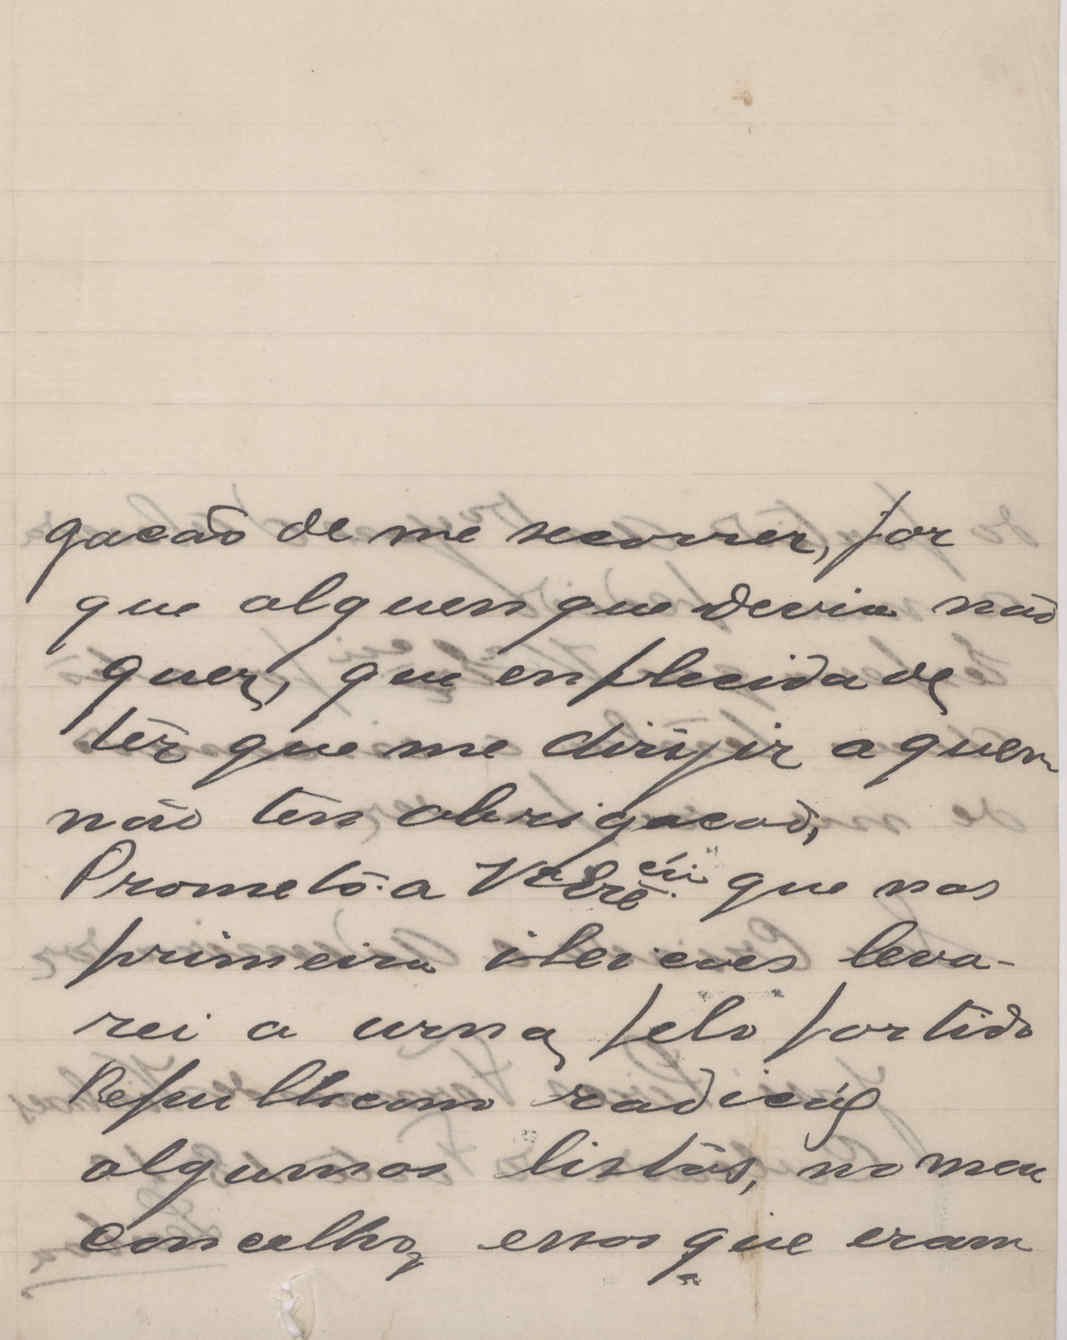 gacão de me secorrer, por
que alguen que devia não
quer, que enfelecidade,
têr que me dirijir a quem
não ten obrigacão,
Prometo a V. Exc.ia que nas
primeira ileicoes leva-
rei a urna, pelo partido
Republicano radical
algumas listas, no meu
concelho, essas que eram